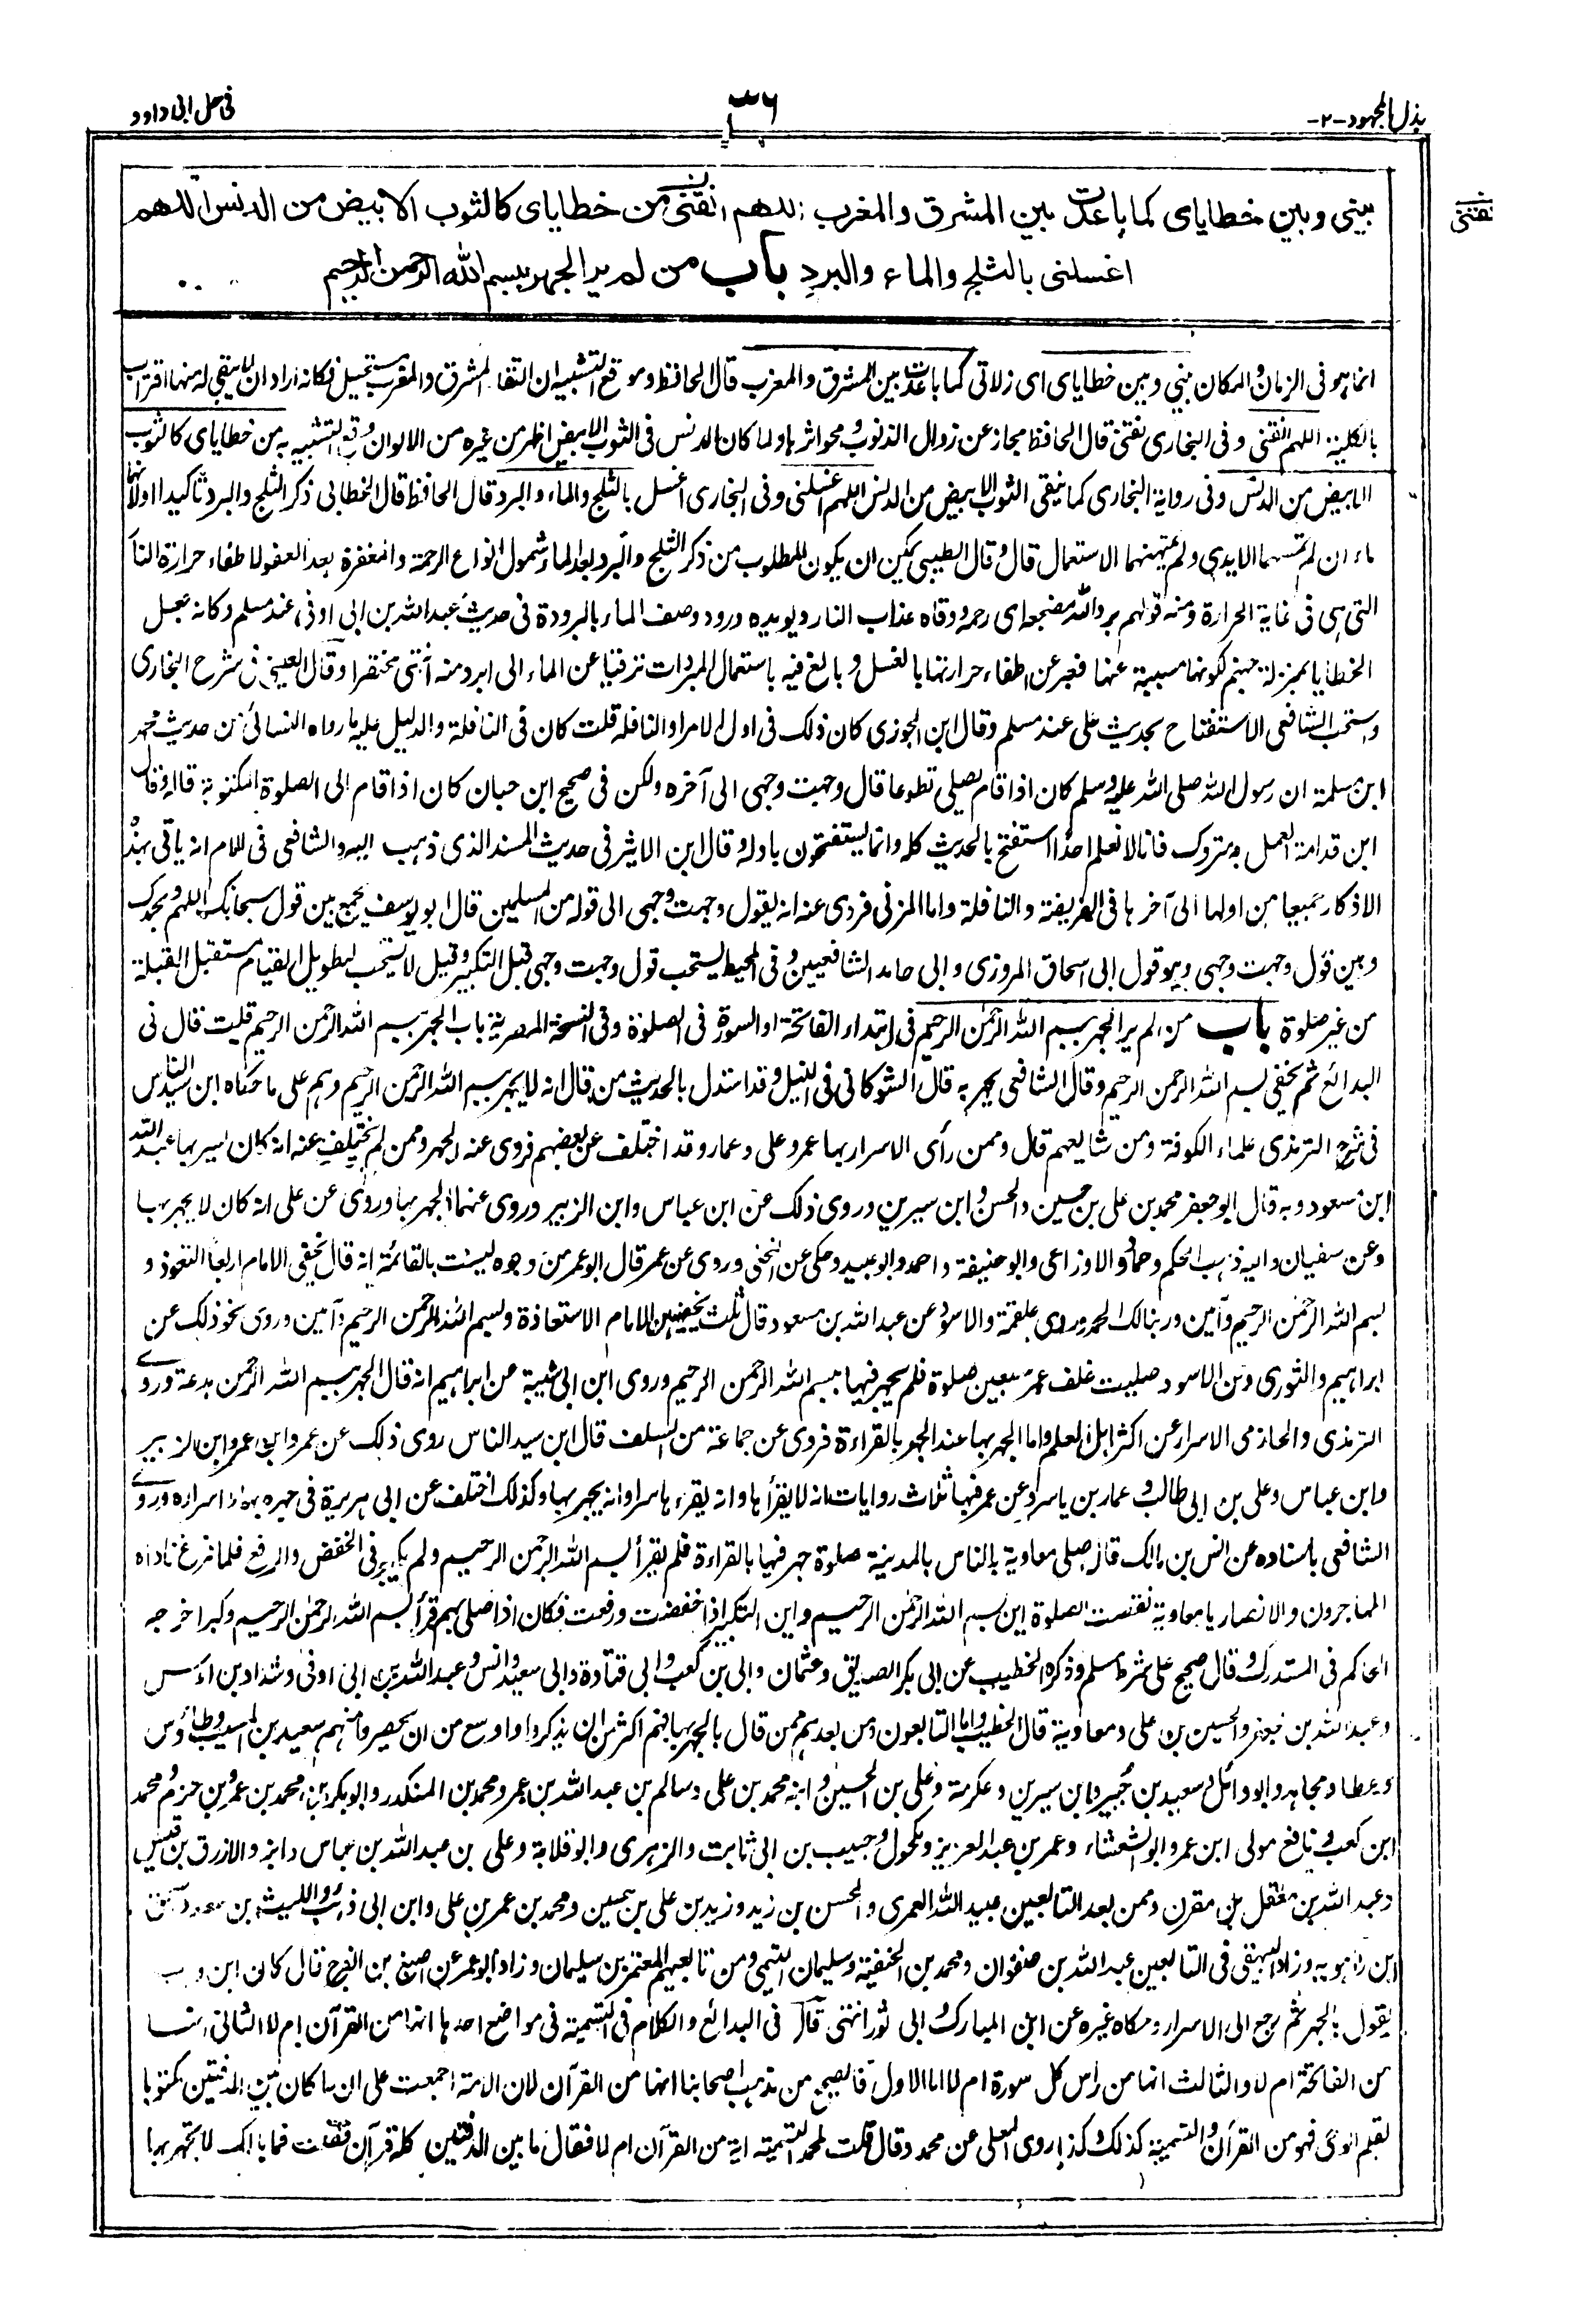 بذل المجهود -٢-
٣٦
فى حل ابى داود
بينى وبين خطاياى كما باعدت بين المشرق والمغرب اللهم انقنى من خطاياى كالثوب الابيض من الدنس اللهم
نقنى
اغسلنى بالثلج والماء والبرد باب من لم ير الجهر ببسم الله الرحمن الرحيم
انما هو فى الزمان والمكان بينى وبين خطاياى اى زلاتى كما باعدت بين المشرق والمغرب قال الحافظ وموقع التشبيه ان التقاء المشرق والمغرب مستحيل فكانه اراد ان لا يبقى له منها اقتراب
بالكلية اللهم انقنى وفى البخارى نقنى قال الحافظ مجاز عن زوال الذنوب ومحو اثرها ولما كان الدنس فى الثوب الابيض اظهر من غيره من الالوان وقع التشبيه به من خطاياى كالثوب
الابيض من الدنس وفى رواية البخارى كما ينقى الثوب الابيض من الدنس اللهم اغسلنى وفى البخارى اغسل بالثلج والماء والبرد قال الحافظ قال الخطابى ذكر الثلج والبرد تاكيدا اولانهما
ماء ان لم تمسهما الايدى ولم يمتهنهما الاستعمال قال وقال الطيبى يمكن ان يكون المطلوب من ذكر الثلج والبرد بعد الماء شمول انواع الرحمة والمغفرة بعد العفو لاطفاء حرارة النار
التى هى فى غاية الحرارة ومنه قولهم برد الله مضجعه اى رحمه ووقاه عذاب النار ويويده ورود وصف الماء بالبرودة فى حديث عبد الله بن ابى اوفى عند مسلم وكانه جعل
الخطايا بمنزلة جهنم لكونها مسببة عنها فعبر عن اطفاء حرارتها بالغسل وبالغ فيه باستعمال المبردات ترقيا عن الماء الى ابرد منه انتهى مختصرا وقال العينى فى شرح البخارى
واستحب الشافعى الاستفتاح بحديث على عند مسلم وقال ابن الجوزى كان ذلك فى اول الامر او النافلة قلت كان فى النافلة والدليل عليه ما رواه النسائى من حديث محمد
ابن مسلمة ان رسول الله صلى الله عليه وسلم كان اذا قام يصلى تطوعا قال وجهت وجهى الى آخره ولكن فى صحيح ابن حبان كان اذا قام الى الصلوة المكتوبة قاله وقال
ابن قدامة العمل به متروك فانا لا نعلم احدا استفتح بالحديث كله وانما يستفتحون باوله وقال ابن الاثير فى حديث المسند الذى ذهب اليه الشافعى فى الام انه ياتى بهذه
الاذكار جميعا من اولها الى آخرها فى الفريضة والنافلة واما المزنى فروى عنه انه يقول وجهت وجهى الى قوله من المسلمين قال ابو يوسف يجمع بين قول سبحانك اللهم وبحمدك
وبين قول وجهت وجهى وهو قول ابى اسحاق المروزى وابى حامد الشافعيين وفى المحيط يستحب قول وجهت وجهى قبل التكبير وقيل لا يستحب لتطويل القيام مستقبل القبلة
من غير صلوة باب من لم ير الجهر ببسم الله الرحمن الرحيم فى ابتداء الفاتحة او السورة فى الصلوة وفى النسخة المصرية باب الجهر ببسم الله الرحمن الرحيم قلت قال فى
البدائع ثم يخفى بسم الله الرحمن الرحيم وقال الشافعى يجهر به قال الشوكانى فى النيل وقد استدل بالحديث من قال انه لا يجهر ببسم الله الرحمن الرحيم وهم على ما حكاه ابن سيد الناس
فى شرح الترمذى علماء الكوفة ومن شايعهم قال وممن رأى الاسرار بها عمر وعلى وعمار وقد اختلف عن بعضهم فروى عنه الجهر وممن لم يختلف عنه انه كان يسر بها عبد الله
ابن مسعود وبه قال ابو جعفر محمد بن على بن حسين والحسن وابن سيرين وروى ذلك عن ابن عباس وابن الزبير وروى عنهما الجهر بها وروى عن على انه كان لا يجهر بها
وعن سفيان واليه ذهب الحكم وحماد والاوزاعى وابو حنيفة واحمد وابو عبيد وحكى عن النخعى وروى عن عمر قال ابو عمر من وجوه ليست بالقائمة انه قال يخفى الامام اربعا التعوذ و
بسم الله الرحمن الرحيم وآمين وربنا لك الحمد وروى علقمة والاسود عن عبد الله بن مسعود قال ثلث يخفيهن الامام الاستعاذة وبسم الله الرحمن الرحيم وآمين وروى نحو ذلك عن
ابراهيم والثورى وعن الاسود صليت خلف عمر سبعين صلوة فلم يجهر فيها ببسم الله الرحمن الرحيم وروى ابن ابى شيبة عن ابراهيم انه قال الجهر ببسم الله الرحمن بدعة وروى
الترمذى والحازمى الاسرار عن اكثر اهل العلم واما الجهر بها عند الجهر بالقراءة فروى عن جماعة من السلف قال ابن سيد الناس روى ذلك عن عمر وابن عمر وابن الزبير
وابن عباس وعلى بن ابى طالب وعمار بن ياسر وعن عمر فيها ثلاث روايات انه لا يقرأها وانه يقرءها سرا وانه يجهر بها وكذلك اختلف عن ابى هريرة فى جهره بها واسراره وروى
الشافعى باسناده عن انس بن مالك قال صلى معاوية بالناس بالمدينة صلوة جهر فيها بالقراءة فلم يقرأ بسم الله الرحمن الرحيم ولم يكبر فى الخفض والرفع فلما فرغ ناداه
المهاجرون والانصار يا معاوية نقصت الصلوة اين بسم الله الرحمن الرحيم واين التكبير اذا خفضت ورفعت فكان اذا صلى بهم قرأ بسم الله الرحمن الرحيم وكبر اخرجه
الحاكم فى المستدرك وقال صحيح على شرط مسلم وذكره الخطيب عن ابى بكر الصديق وعثمان وابى بن كعب وابى قتادة وابى سعيد وانس وعبد الله بن ابى اوفى وشداد بن اوس
وعبد الله بن جعفر والحسين بن على ومعاوية قال الخطيب واما التابعون ومن بعدهم ممن قال بالجهر بها فهم اكثر من ان يذكروا واوسع من ان يحصروا منهم سعيد بن المسيب وطاؤس
وعطاء ومجاهد وابو وائل وسعيد بن جبير وابن سيرين وعكرمة وعلى بن الحسين وابنه محمد بن على وسالم بن عبد الله بن عمر ومحمد بن المنكدر وابو بكر بن محمد بن عمرو بن حزم ومحمد
ابن كعب ونافع مولى ابن عمر وابو الشعثاء وعمر بن عبد العزيز ومكحول وحبيب بن ابى ثابت والزهرى وابو قلابة وعلى بن عبد الله بن عباس وابنه والازرق بن قيس
وعبد الله بن مغفل بن مقرن وممن بعد التابعين عبيد الله العمرى والحسن بن زيد وزيد بن على بن حسين ومحمد بن عمر بن على وابن ابى ذئب والليث بن سعد واسحق
ابن راهويه وزاد البيهقى فى التابعين عبد الله بن صفوان ومحمد بن الحنفية وسليمان التيمى ومن تابعيهم المعتمر بن سليمان وزاد ابو عمر عن اصبغ بن الفرج قال كان ابن وهب
يقول بالجهر ثم رجع الى الاسرار وحكاه غيره عن ابن المبارك وابى ثور انتهى قال فى البدائع والكلام فى التسمية فى مواضع احدها انها من القرآن ام لا الثانى انها
من الفاتحة ام لا والثالث انها من رأس كل سورة ام لا اما الاول فالصحيح من مذهب اصحابنا انها من القرآن لان الامة اجمعت على ان ما كان بين الدفتين مكتوبا
بقلم الوحى فهو من القرآن والتسمية كذلك وكذا روى المعلى عن محمد وقال قلت لمحمد التسمية اية من القرآن ام لا فقال ما بين الدفتين كله قرآن فقلت فما بالك لا تجهر بها